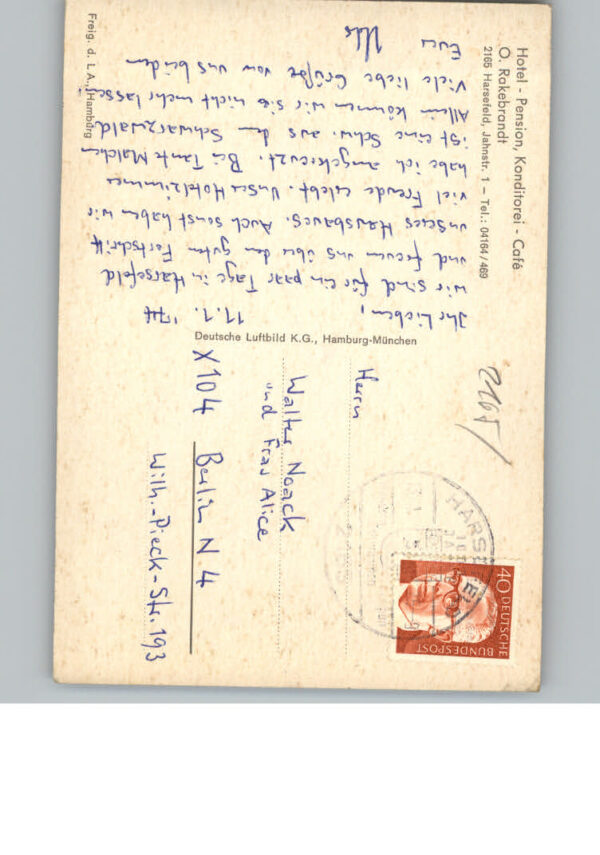 Hotel - Pension, Konditorei - Café
O. Rakebrandt
2165 Harsefeld, Jahnstr. 1 – Tel.: 04164/469
11.1.'74
Ihr Lieben,
wir sind für ein paar Tage in Harsefeld
und freuen uns über den guten Fortschritt
unseres Hausbaues. Auch sonst haben wir
viel Freude erlebt. Unser Hotelzimmer
habe ich angekreuzt. Bei Tante Malchen
ist eine Schw. aus dem Schwarzwald.
Allein können wir sie nicht mehr lassen!
Viele liebe Grüße von uns beiden
Eure
Freig. d. L A., Hamburg
Deutsche Luftbild K.G., Hamburg-München
2165/
Herrn
Walter Noack
und Frau Alice
X104 Berlin N 4
Wilh.-Pieck-Str. 193
40 DEUTSCHE
BUNDESPOST
HARSEFELD